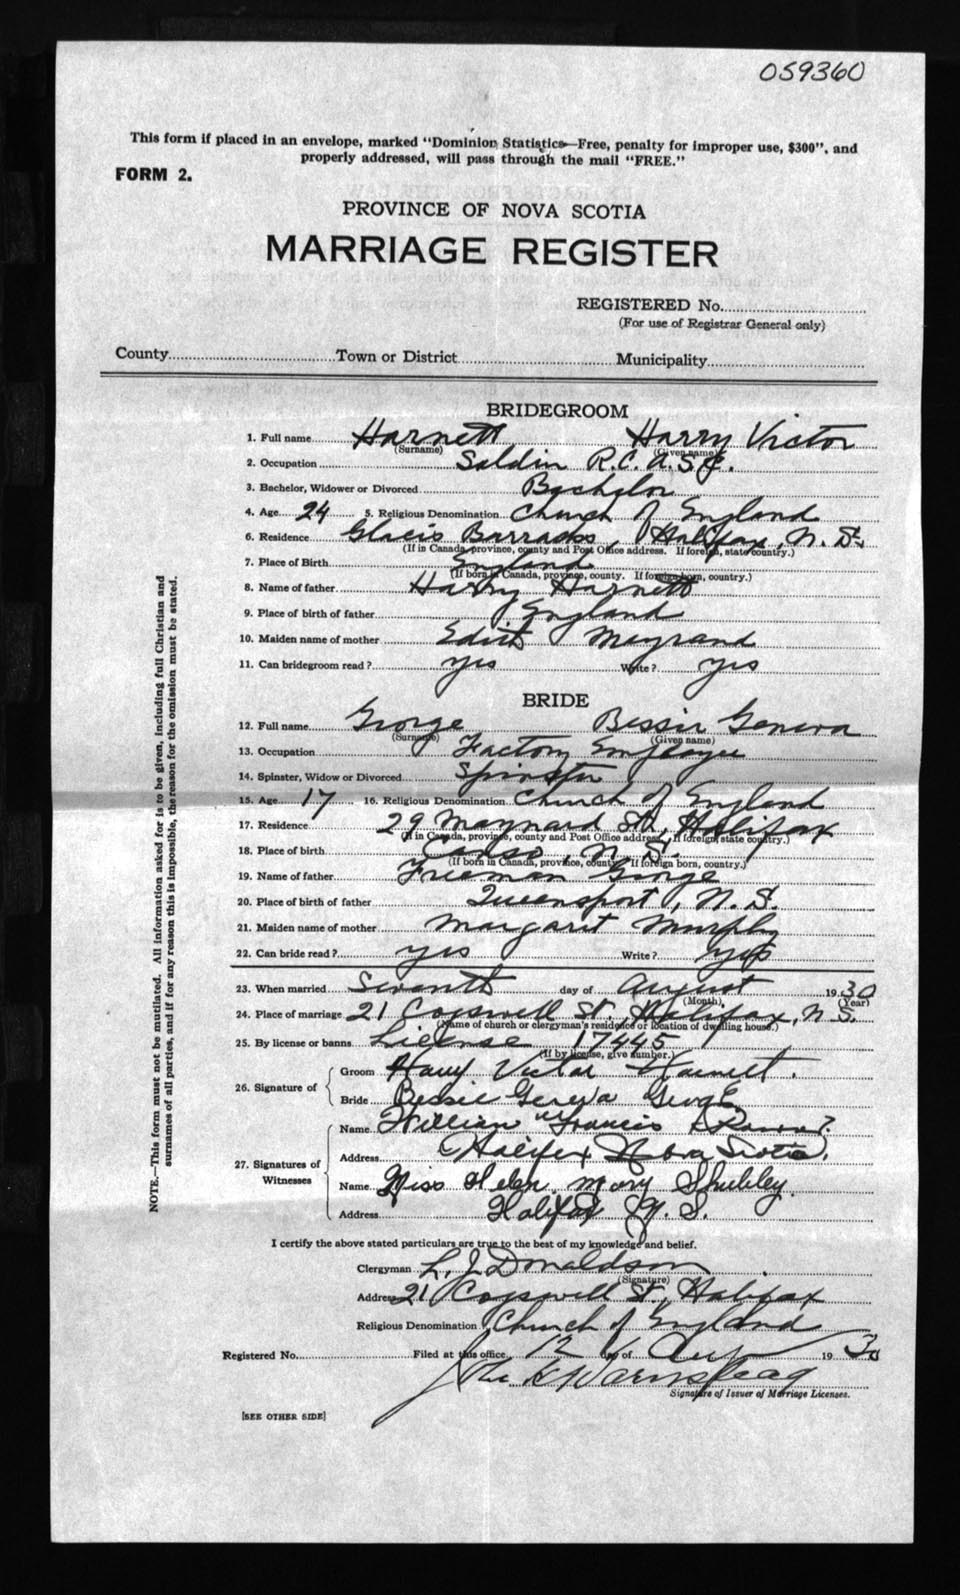 059360
This form if placed in an envelope, marked "Dominion Statistics—Free, penalty for improper use, $300", and
properly addressed, will pass through the mail "FREE."
FORM 2.
PROVINCE OF NOVA SCOTIA
MARRIAGE REGISTER
REGISTERED No.
(For use of Registrar General only)
County Town or District Municipality
BRIDEGROOM
1. Full name Harnett Harry Victor
(Surname) (Given name)
2. Occupation Soldier R.C.A.S.C.
3. Bachelor, Widower or Divorced Bachelor
4. Age 24 5. Religious Denomination Church of England
6. Residence Glacis Barracks, Halifax, N.S.
(If in Canada, province, county and Post Office address. If foreign, state country.)
7. Place of Birth England
(If born in Canada, province, county. If foreign born, country.)
8. Name of father Harry Harnett
9. Place of birth of father England
10. Maiden name of mother Edith Mayrand
11. Can bridegroom read? yes Write? yes
BRIDE
12. Full name George Bessie Geneva
(Surname) (Given name)
13. Occupation Factory Employee
14. Spinster, Widow or Divorced Spinster
15. Age 17 16. Religious Denomination Church of England
17. Residence 29 Maynard St., Halifax
(If in Canada, province, county and Post Office address. If foreign, state country.)
18. Place of birth Canso, N.S.
(If born in Canada, province, county. If foreign born, country.)
19. Name of father Freeman George
20. Place of birth of father Queensport, N.S.
21. Maiden name of mother Margaret Murphy
22. Can bride read? yes Write? yes
23. When married Seventh day of August 1930
(Month) (Year)
24. Place of marriage 21 Cogswell St., Halifax, N.S.
(Name of church or clergyman's residence or location of dwelling house.)
25. By license or banns License 17445
(If by license, give number.)
26. Signature of
Groom Harry Victor Harnett.
Bride Bessie Geneva George
27. Signatures of Witnesses
Name William Francis
Address Halifax Nova Scotia.
Name Miss Helen Mary Shubley
Address Halifax N.S.
I certify the above stated particulars are true to the best of my knowledge and belief.
Clergyman L. J. Donaldson
(Signature)
Address 21 Cogswell St., Halifax
Religious Denomination Church of England
Registered No. Filed at this office 12 day of Aug 1930
John
Signature of Issuer of Marriage Licenses.
[SEE OTHER SIDE]
NOTE.—This form must not be mutilated. All information asked for is to be given, including full Christian and
surnames of all parties, and if for any reason this is impossible, the reason for the omission must be stated.